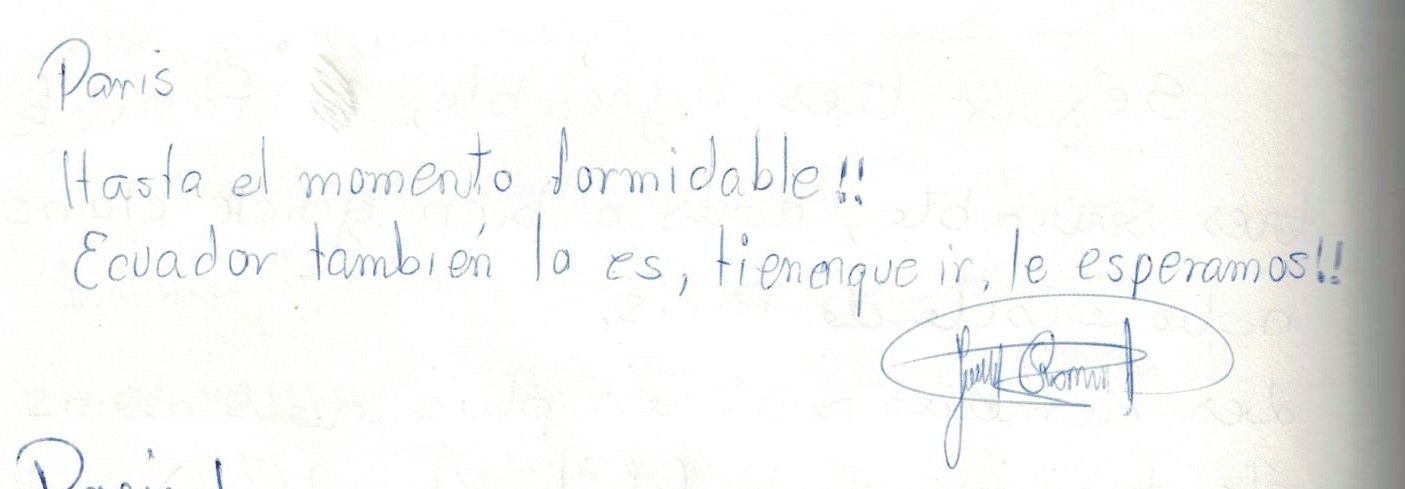 Paris
Hasta el momento formidable!!
Ecuador también lo es, tienenque ir, le esperamos!!